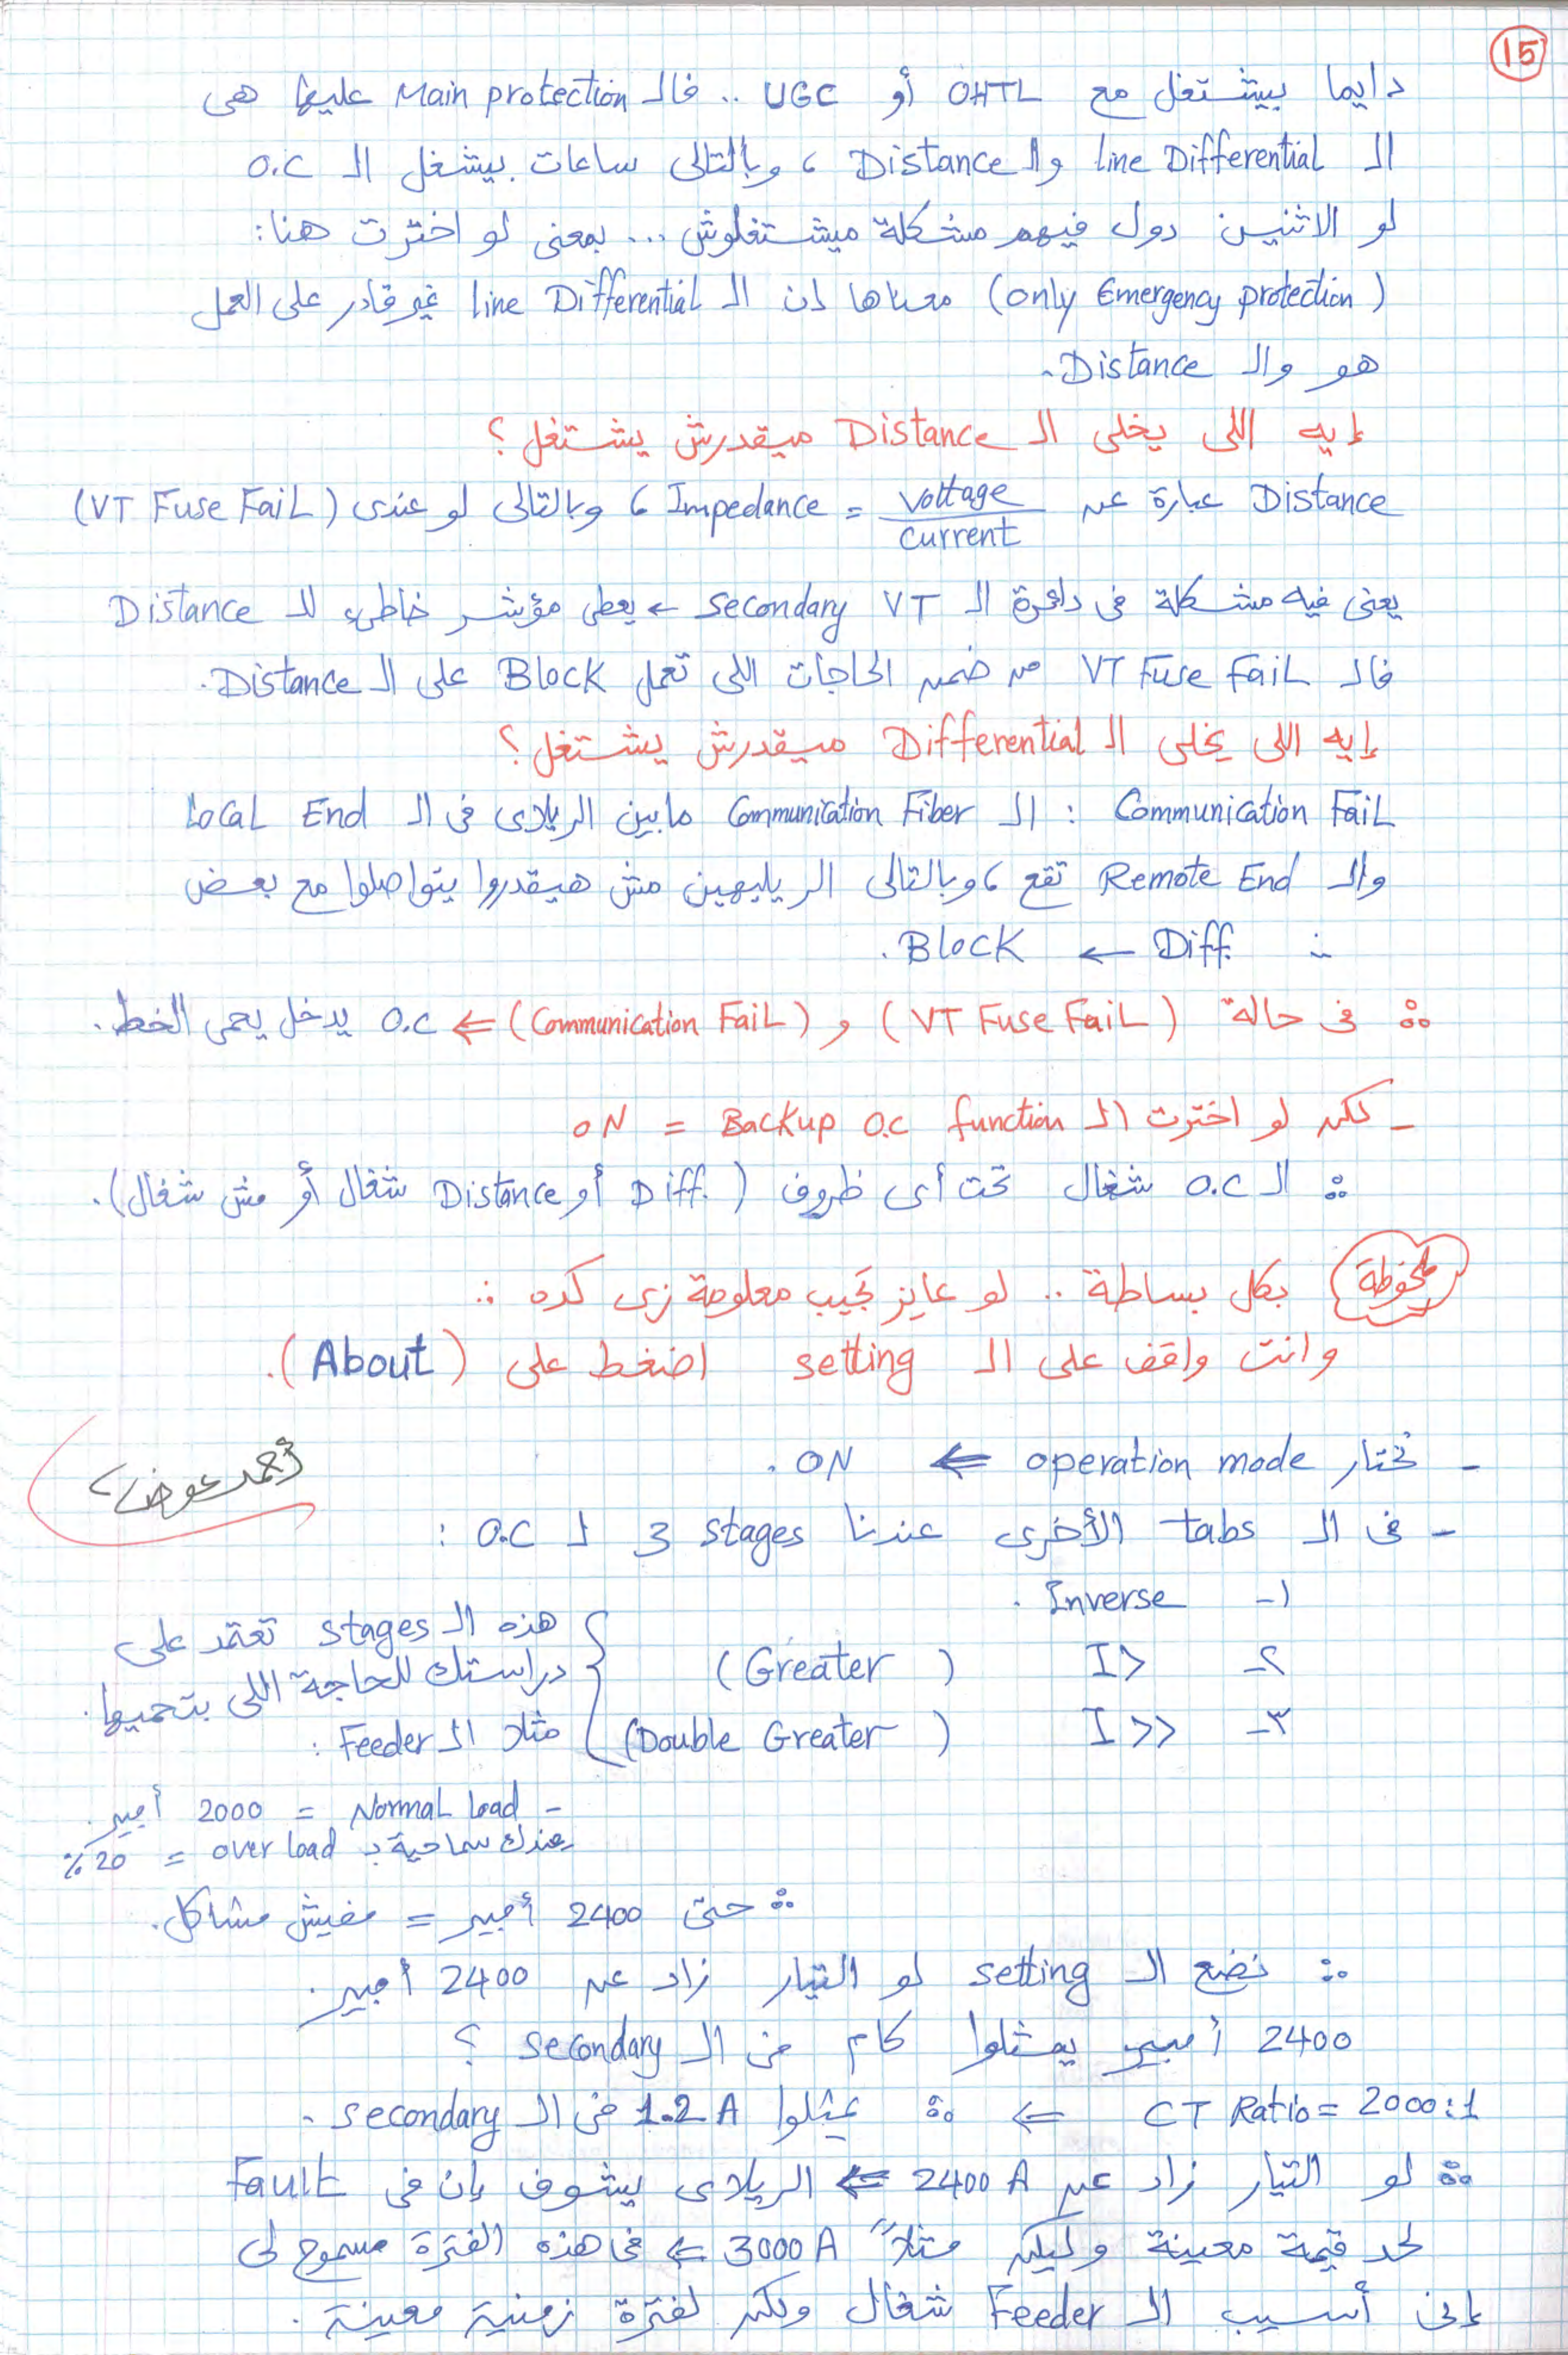 15
دايما بيشتغل مع OHTL أو UGC .. فالـ Main protection عليها هى
الـ line Differential والـ Distance ، وبالتالى ساعات بيشغل الـ O.C
لو الاثنين دول فيهم مشكلة ميشتغلوش ... بمعنى لو اخترت هنا:
(only Emergency protection) معناها إن الـ line Differential غير قادر على العمل
هو والـ Distance.
إيه اللى يخلى الـ Distance ميقدرش يشتغل؟
Distance عبارة عن Impedance = voltage / current ، وبالتالى لو عندى (VT Fuse FaiL)
يعنى فيه مشكلة فى دائرة الـ secondary VT ← يعطى مؤشر خاطىء للـ Distance
فالـ VT Fuse FaiL من ضمن الحاجات اللى تعمل BLocK على الـ Distance.
إيه اللى يخلى الـ Differential ميقدرش يشتغل؟
Communication FaiL : الـ Communication Fiber مابين الريلاى فى الـ LocaL End
والـ Remote End تقع ، وبالتالى الريليهين مش هيقدروا يتواصلوا مع بعض
∴ Diff. ← BLocK.
∴ فى حالة (VT Fuse FaiL) و (Communication FaiL) ⇐ O.C يدخل يحمى الخط.
- لكن لو اخترت الـ Backup O.C function = ON
∴ الـ O.C شغال تحت أى ظروف (Diff. أو Distance شغال أو مش شغال).
ملحوظة بكل بساطة .. لو عايز تجيب معلومة زى كده :
وانت واقف على الـ setting اضغط على (About).
- تختار operation mode ⇐ ON.
أحمد عوض
- فى الـ tabs الأخرى عندنا 3 stages لـ O.C :
١- Inverse.
٢- I> (Greater)
٣- I>> (Double Greater)
هذه الـ stages تعتمد على
دراستك للحاجة اللى بتحميها.
مثلا الـ Feeder :
- NormaL Load = 2000 أمبير.
عندك سماحية بـ over load = 20 %
∴ حتى 2400 أمبير = مفيش مشاكل.
∴ نضع الـ setting لو التيار زاد عن 2400 أمبير.
2400 أمبير يمثلوا كام فى الـ secondary ؟
CT Ratio = 2000:1 ⇐ ∴ يمثلوا 1.2 A فى الـ secondary.
∴ لو التيار زاد عن 2400 A ⇐ الريلاى يشوف إن فى FauLt
لحد قيمة معينة وليكن مثلاً 3000 A ⇐ فى هذه الفترة مسموح لى
إنى أسيب الـ Feeder شغال ولكن لفترة زمنية معينة.